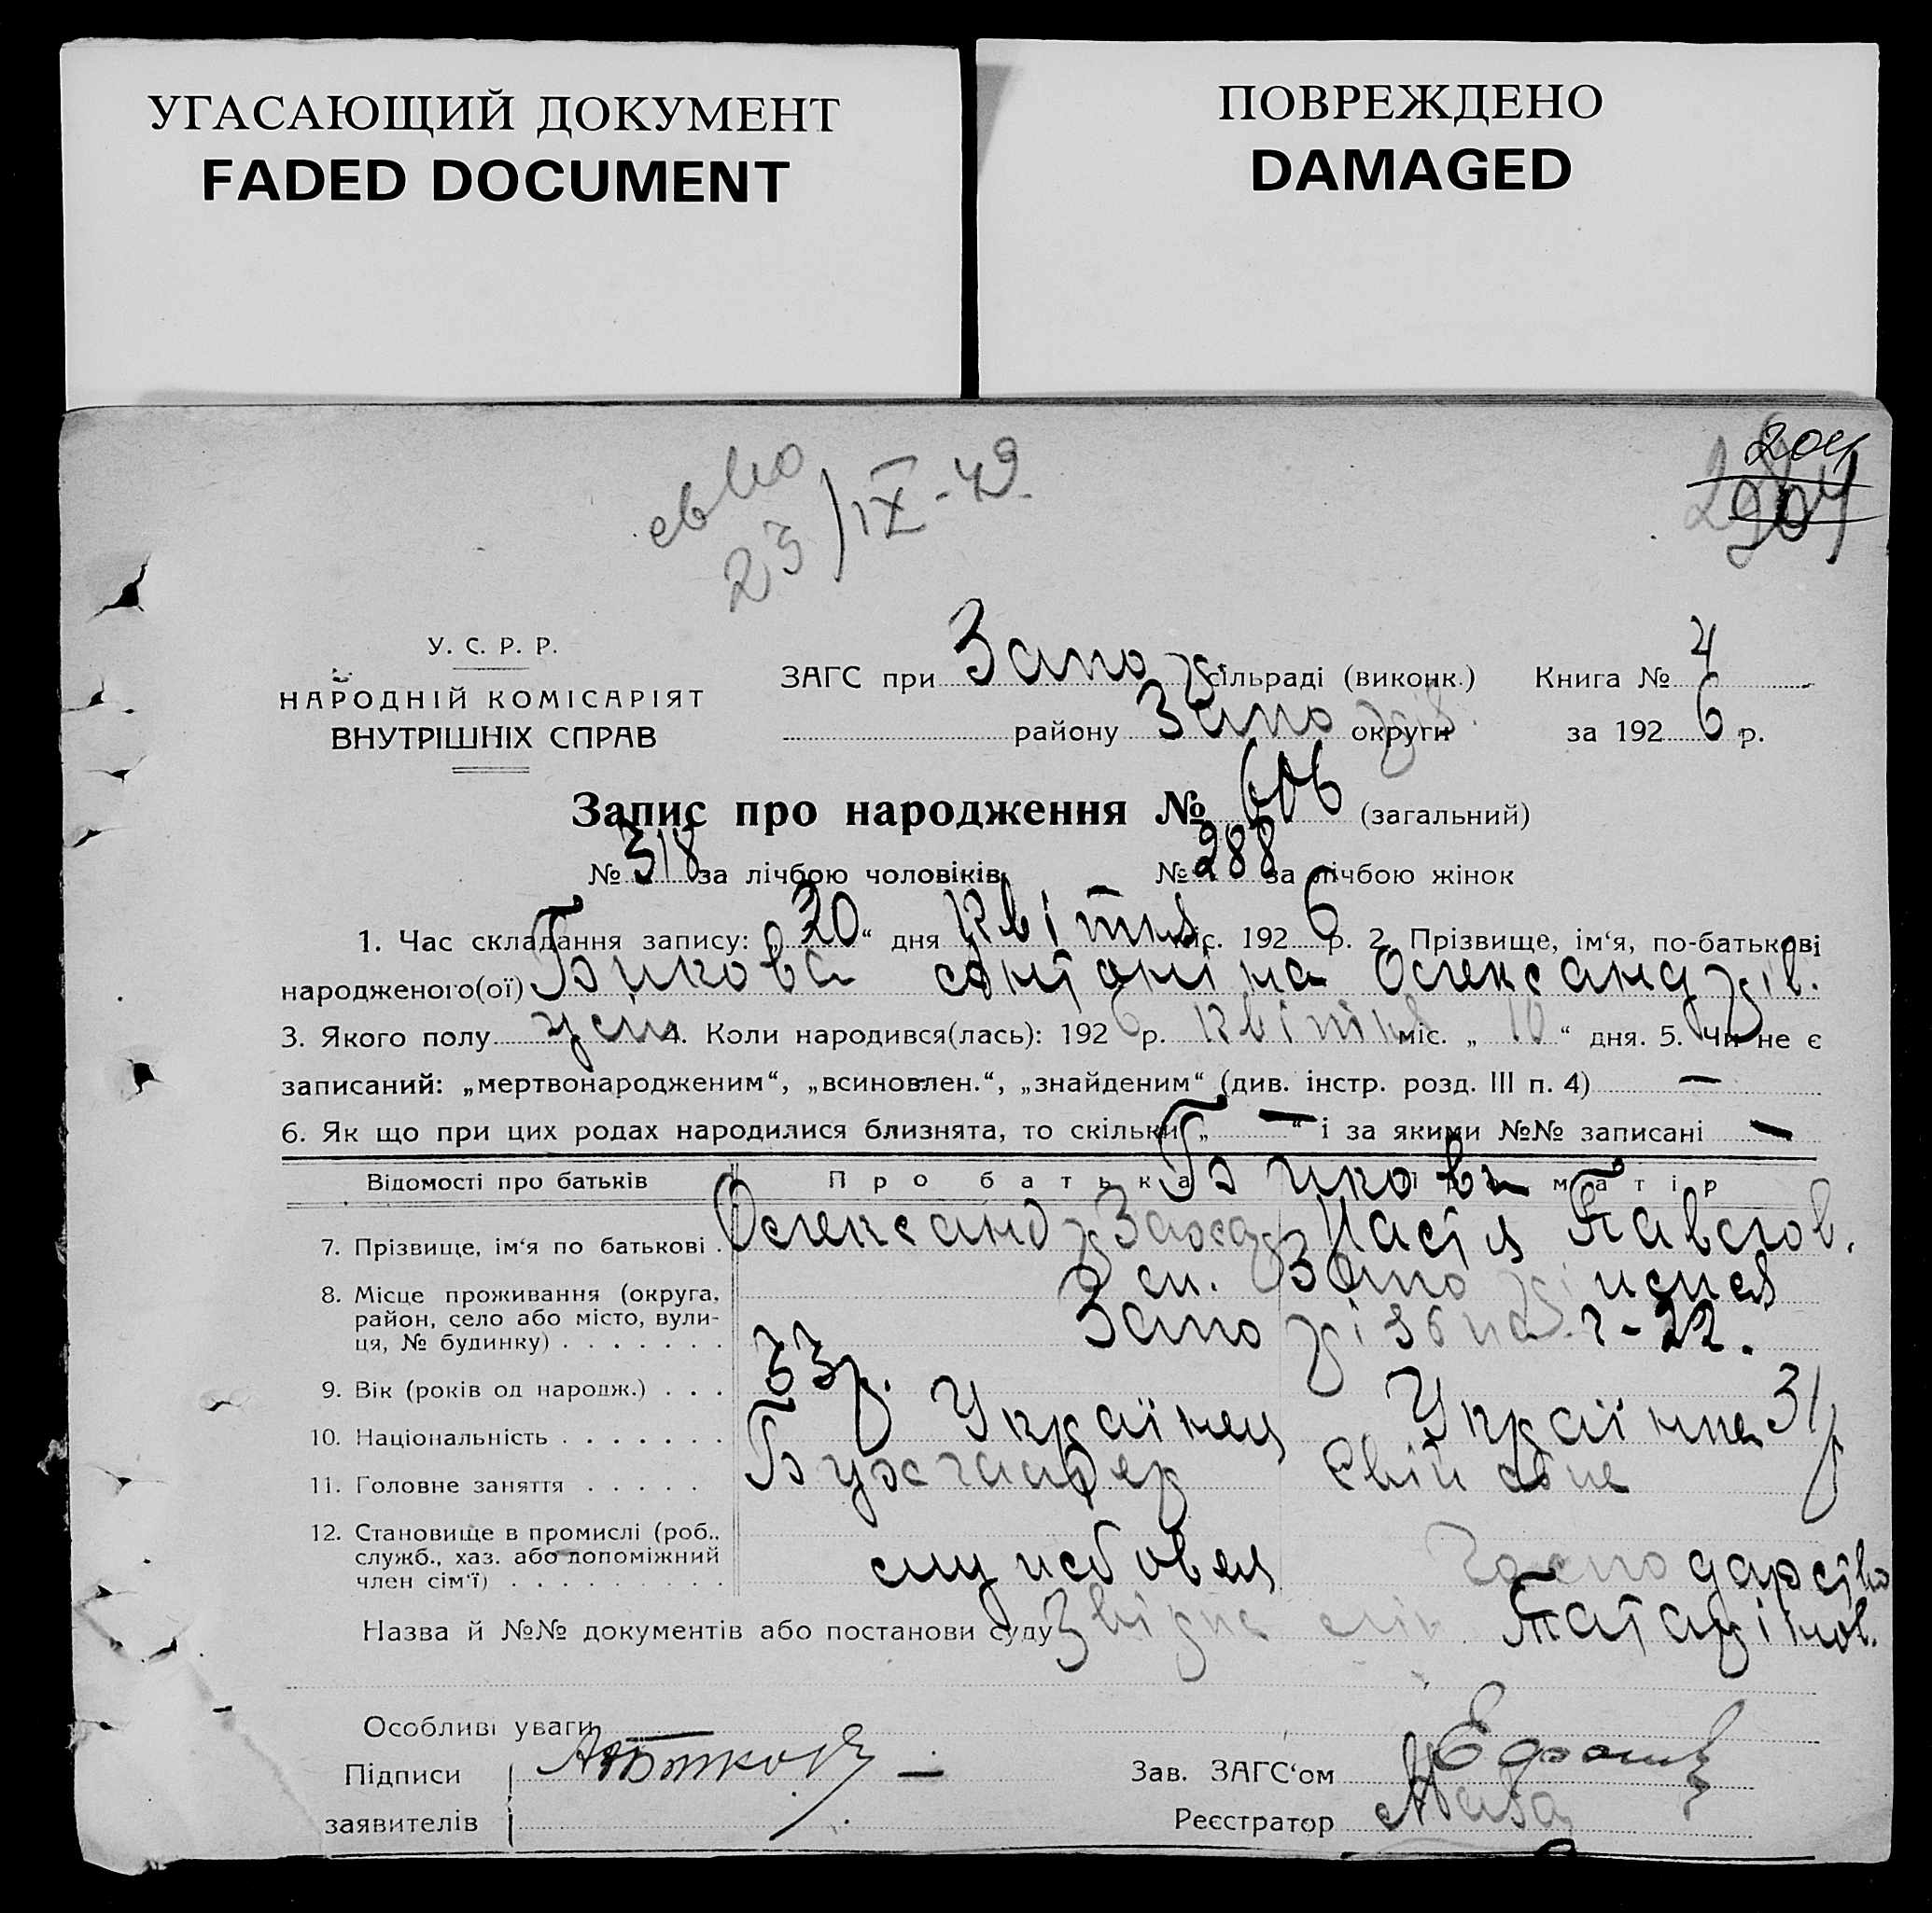 УГАСАЮЩИЙ ДОКУМЕНТ
FADED DOCUMENT
ПОВРЕЖДЕНО
DAMAGED
204
23/IX-49
У. С. Р. Р.
НАРОДНІЙ КОМІСАРІЯТ
ВНУТРІШНІХ СПРАВ
ЗАГС при Запор сільраді (виконк.) Книга № 4
району Запоріз. округи за 1926 р.
Запис про народження № 606 (загальний)
№ 318 за лічбою чоловіків № 288 за лічбою жінок
1. Час складання запису: „30“ дня квітня міс. 1926 р. 2. Прізвище, ім‘я, по-батькові
народженого(ої) Бикова Антоніна Олександрів.
3. Якого полу жін 4. Коли народився(лась): 1926 р. квітня міс. „10“ дня. 5. Чи не є
записаний: „мертвонародженим“, „всиновлен.“, „знайденим“ (див. інстр. розд. III п. 4) —
6. Як що при цих родах народилися близнята, то скільки „—“ і за якими №№ записані —
Відомості про батьків Про батька Про матір
Бикови
7. Прізвище, ім‘я по батькові . Олександр Захар Настя Павлов.
8. Місце проживання (округа, район, село або місто, вулиця, № будинку) . . . . . . .
22.
9. Вік (років од народж.) . . . 33 р. 31 р
10. Національність . . . . . . . Українец Українка
11. Головне заняття . . . . . Бухгалтер
12. Становище в промислі (роб., служб., хаз. або допоміжний член сім‘ї) . . . . . . . . . службовец господарство
Назва й №№ документів або постанови суду
Особливі уваги
Підписи
заявителів
Зав. ЗАГС‘ом
Реєстратор